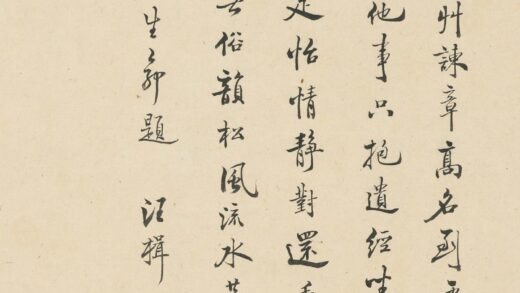 艸諫章高名到
他事只抱遺經
足怡情靜對還
俗韻松風流水共
生命題 汪楫